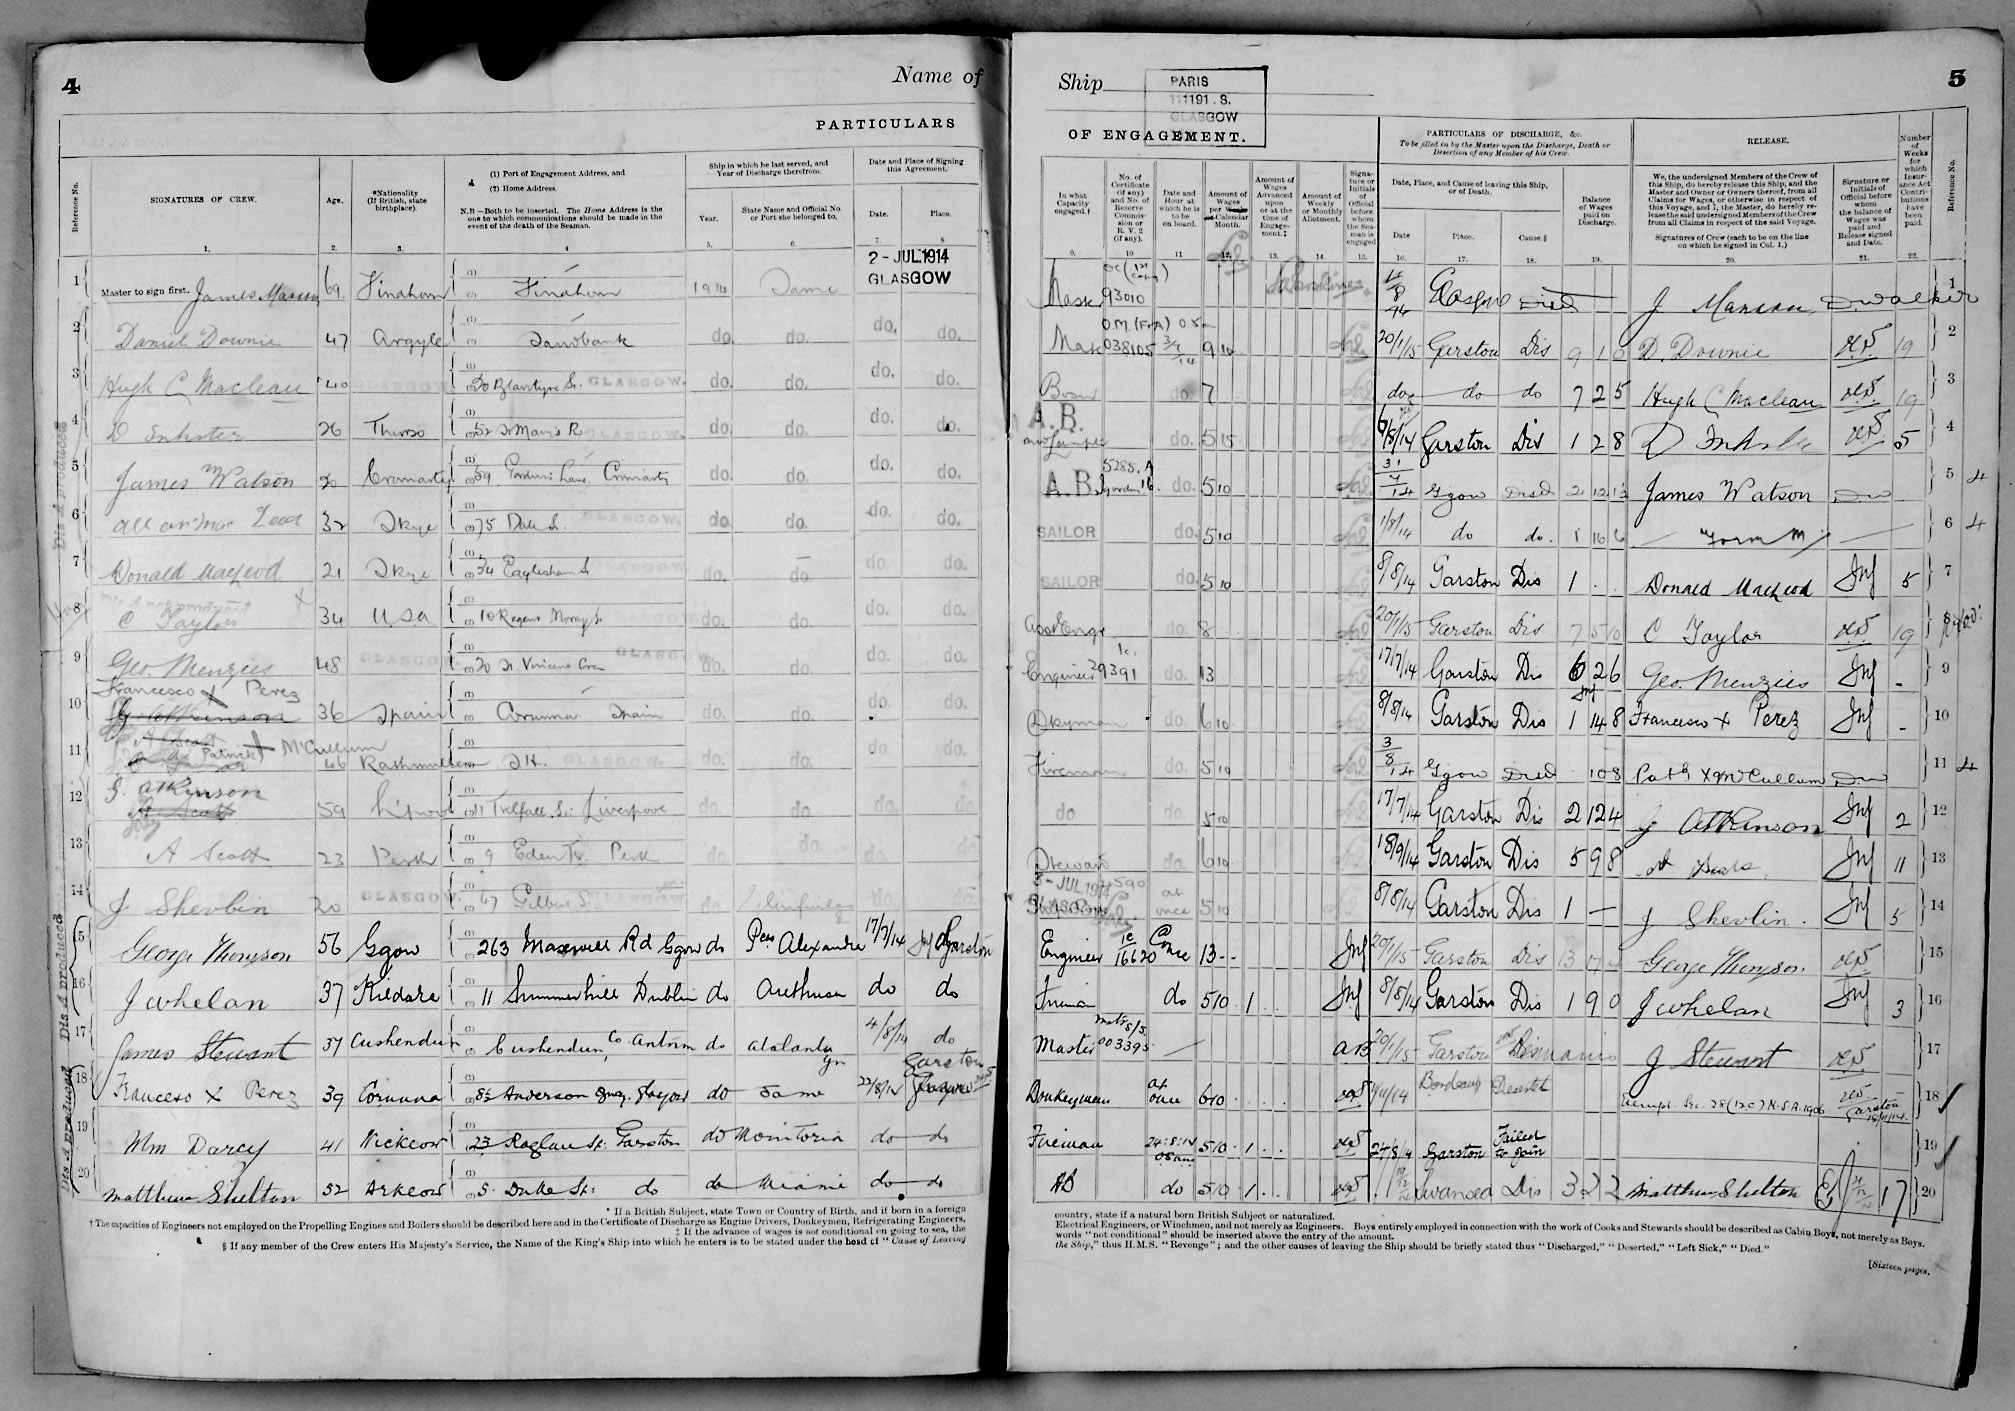 4
Name of
PARTICULARS
Reference No.
SIGNATURES OF CREW.
Age.
*Nationality (If British, state birthplace).
(1) Port of Engagement Address, and
(2) Home Address.
N.B.—Both to be inserted. The Home Address is the one to which communications should be made in the event of the death of the Seaman.
Ship in which he last served, and Year of Discharge therefrom.
Year.
State Name and Official No. or Port she belonged to.
Date and Place of Signing this Agreement.
Date.
Place.
1. 2. 3. 4 5. 6. 7. 8
2-JUL 1914
GLASGOW
1 Master to sign first. James Manson 69. Findhorn Findhorn 1914 Same
2 Daniel Downie 47 Argyle Sandbank do. do. do. do.
3 Hugh C Maclean 40 GLASGOW. 30 Blantyre St. GLASGOW. do. do. do. do.
4 D Inkster 26 Thurso 52 St Mary's R GLASGOW. do. do. do. do.
5 James Watson 20 Cromarty Lane Cromarty do. do. do. do.
6 32 Skye 75 Dale St. GLASGOW. do. do. do. do.
7 Donald MacLeod 21 Skye 34 Eaglesham St GLASGOW. do. do. do. do.
8 C Taylor 34 USA 10 Regent Moray St GLASGOW do. do. do. do.
9 Geo. Menzies 48 GLASGOW. 30 St. Vincent Cres GLASGOW do. do. do. do.
10 Francesco X Perez 36 Spain Corunna Spain do. do. do. do.
11 Patrick X McCullum 46 Rathmullen GLASGOW. do. do. do. do.
12 G. Atkinson 59 L'pool 21 Threlfall St. Liverpool do. do. do. do.
13 A Scott 23 Perth 9 Eden Perth do do. do. do.
14 J Shevlin 20 GLASGOW. 47 Gilbert St. GLASGOW
15 George Thomson 56 Ggow 263 Maxwell Rd Ggow do Pcss Alexandra 17/7/14 Garston
16 J Whelan 37 Kildare 11 Summerhill Dublin do Arethusa do do
17 James Stewart 37 Cushendun Cushendun, Co. Antrim do Atalanta 4/8/14 do
18 Franceso X Perez 39 Corunna 82 Anderson Quay. Glasgow do Same 22/8/14 Garston
19 Wm Darcy 41 Wicklow 23 Raglan St. Garston do Monitoria do do
20 Matthew Shelton 52 Arklow 5. Duke St. do do Miami do do
Dis A produced
Dis A produced
Dis A produced
* If a British Subject, state Town or Country of Birth, and if born in a foreign
† The capacities of Engineers not employed on the Propelling Engines and Boilers should be described here and in the Certificate of Discharge as Engine Drivers, Donkeymen, Refrigerating Engineers,
‡ If the advance of wages is not conditional on going to sea, the
§ If any member of the Crew enters His Majesty's Service, the Name of the King's Ship into which he enters is to be stated under the head of "Cause of Leaving
Ship
PARIS
111191. S.
GLASGOW
5
OF ENGAGEMENT.
PARTICULARS OF DISCHARGE, &c.
To be filled in by the Master upon the Discharge, Death or Desertion of any Member of his Crew.
RELEASE.
In what Capacity engaged.†
No. of Certificate (if any) and No. of Reserve Commission or R. V. 2 (if any).
Date and Hour at which he is to be on board.
Amount of Wages per Calendar Month.
Amount of Wages Advanced upon or at the time of Engagement.‡
Amount of Weekly or Monthly Allotment.
Signature or Initials of Official before whom the Seaman is engaged
Date, Place, and Cause of leaving this Ship, or of Death.
Date
Place.
Cause.§
Balance of Wages paid on Discharge.
We, the undersigned Members of the Crew of this Ship, do hereby release this Ship, and the Master and Owner or Owners thereof, from all Claims for Wages, or otherwise in respect of this Voyage, and I, the Master, do hereby release the said undersigned Members of the Crew from all Claims in respect of the said Voyage.
Signatures of Crew (each to be on the line on which he signed in Col. 1.)
Signature or Initials of Official before whom the balance of Wages was paid and Release signed and Date.
Number of Weeks for which Insurance Act Contributions have been paid.
Reference No.
9. 10 11 12. 13. 14. 15. 16. 17. 18. 19. 20. 21. 22.
93010 4/8/14 Glasgow Disd J Manson D Walker 1
Mate 038105 9 10 20/1/15 Garston Dis 9 1 0 D. Downie 19 2
Bosun do. 7 do do do 7 2 5 Hugh C Maclean 19 3
A.B. and Lamps do. 5 15 6/8/14 Garston Dis 1 2 8 5 4
A.B. 5285. A do. 5 10 31/7/14 Ggow Disd 2 12 James Watson DW 5 4
SAILOR do. 5 10 1/8/14 do do. 1 16 6 Form M 6 4
SAILOR do. 5 10 8/8/14 Garston Dis 1 . Donald MacLeod 5 7
Asst Engr do. 8 20/1/15 Garston Dis 7 5 10 C Taylor 19 8
Engineer 29391 do. 13 17/7/14 Garston Dis 6 2 6 Geo. Menzies - 9
Dkyman do. 6 10 8/8/14 Garston Dis 1 14 8 Francesco X Perez - 10
Fireman do. 5 10 3/8/14 Ggow Disd 10 8 Patk X McCullum DW 11 4
do do. 5 10 17/7/14 Garston Dis 2 12 4 G Atkinson 2 12
Steward do. 6 10 18/9/14 Garston Dis 5 9 8 A Scott 11 13
3-JUL 1914 GLASGOW at once 5 10 8/8/14 Garston Dis 1 — J Shevlin. 5 14
Engineer 16620 @ once 13 -- 20/1/15 Garston Dis 13 George Thomson. 15
Fireman do 5 10 1 8/8/14 Garston Dis 1 9 0 J Whelan 3 16
Master 003395 — 20/1/15 Garston Remains J Stewart 17
Donkeyman at once 6 10 Bordeaux Desertd Exempt. Sec. 28 N.S.A. 1906 Garston 18
Fireman 24:8:14 5 10 1 24/8/14 Garston Failed to join 19
AB do 5 10 1 Swansea Dis 3 2 2 Matthew Shelton 17 20
country, state if a natural born British Subject or naturalized.
Electrical Engineers, or Winchmen, and not merely as Engineers. Boys entirely employed in connection with the work of Cooks and Stewards should be described as Cabin Boys, not merely as Boys.
words "not conditional" should be inserted above the entry of the amount.
the Ship," thus H.M.S. "Revenge"; and the other causes of leaving the Ship should be briefly stated thus "Discharged," "Deserted," "Left Sick," "Died."
[Sixteen pages.